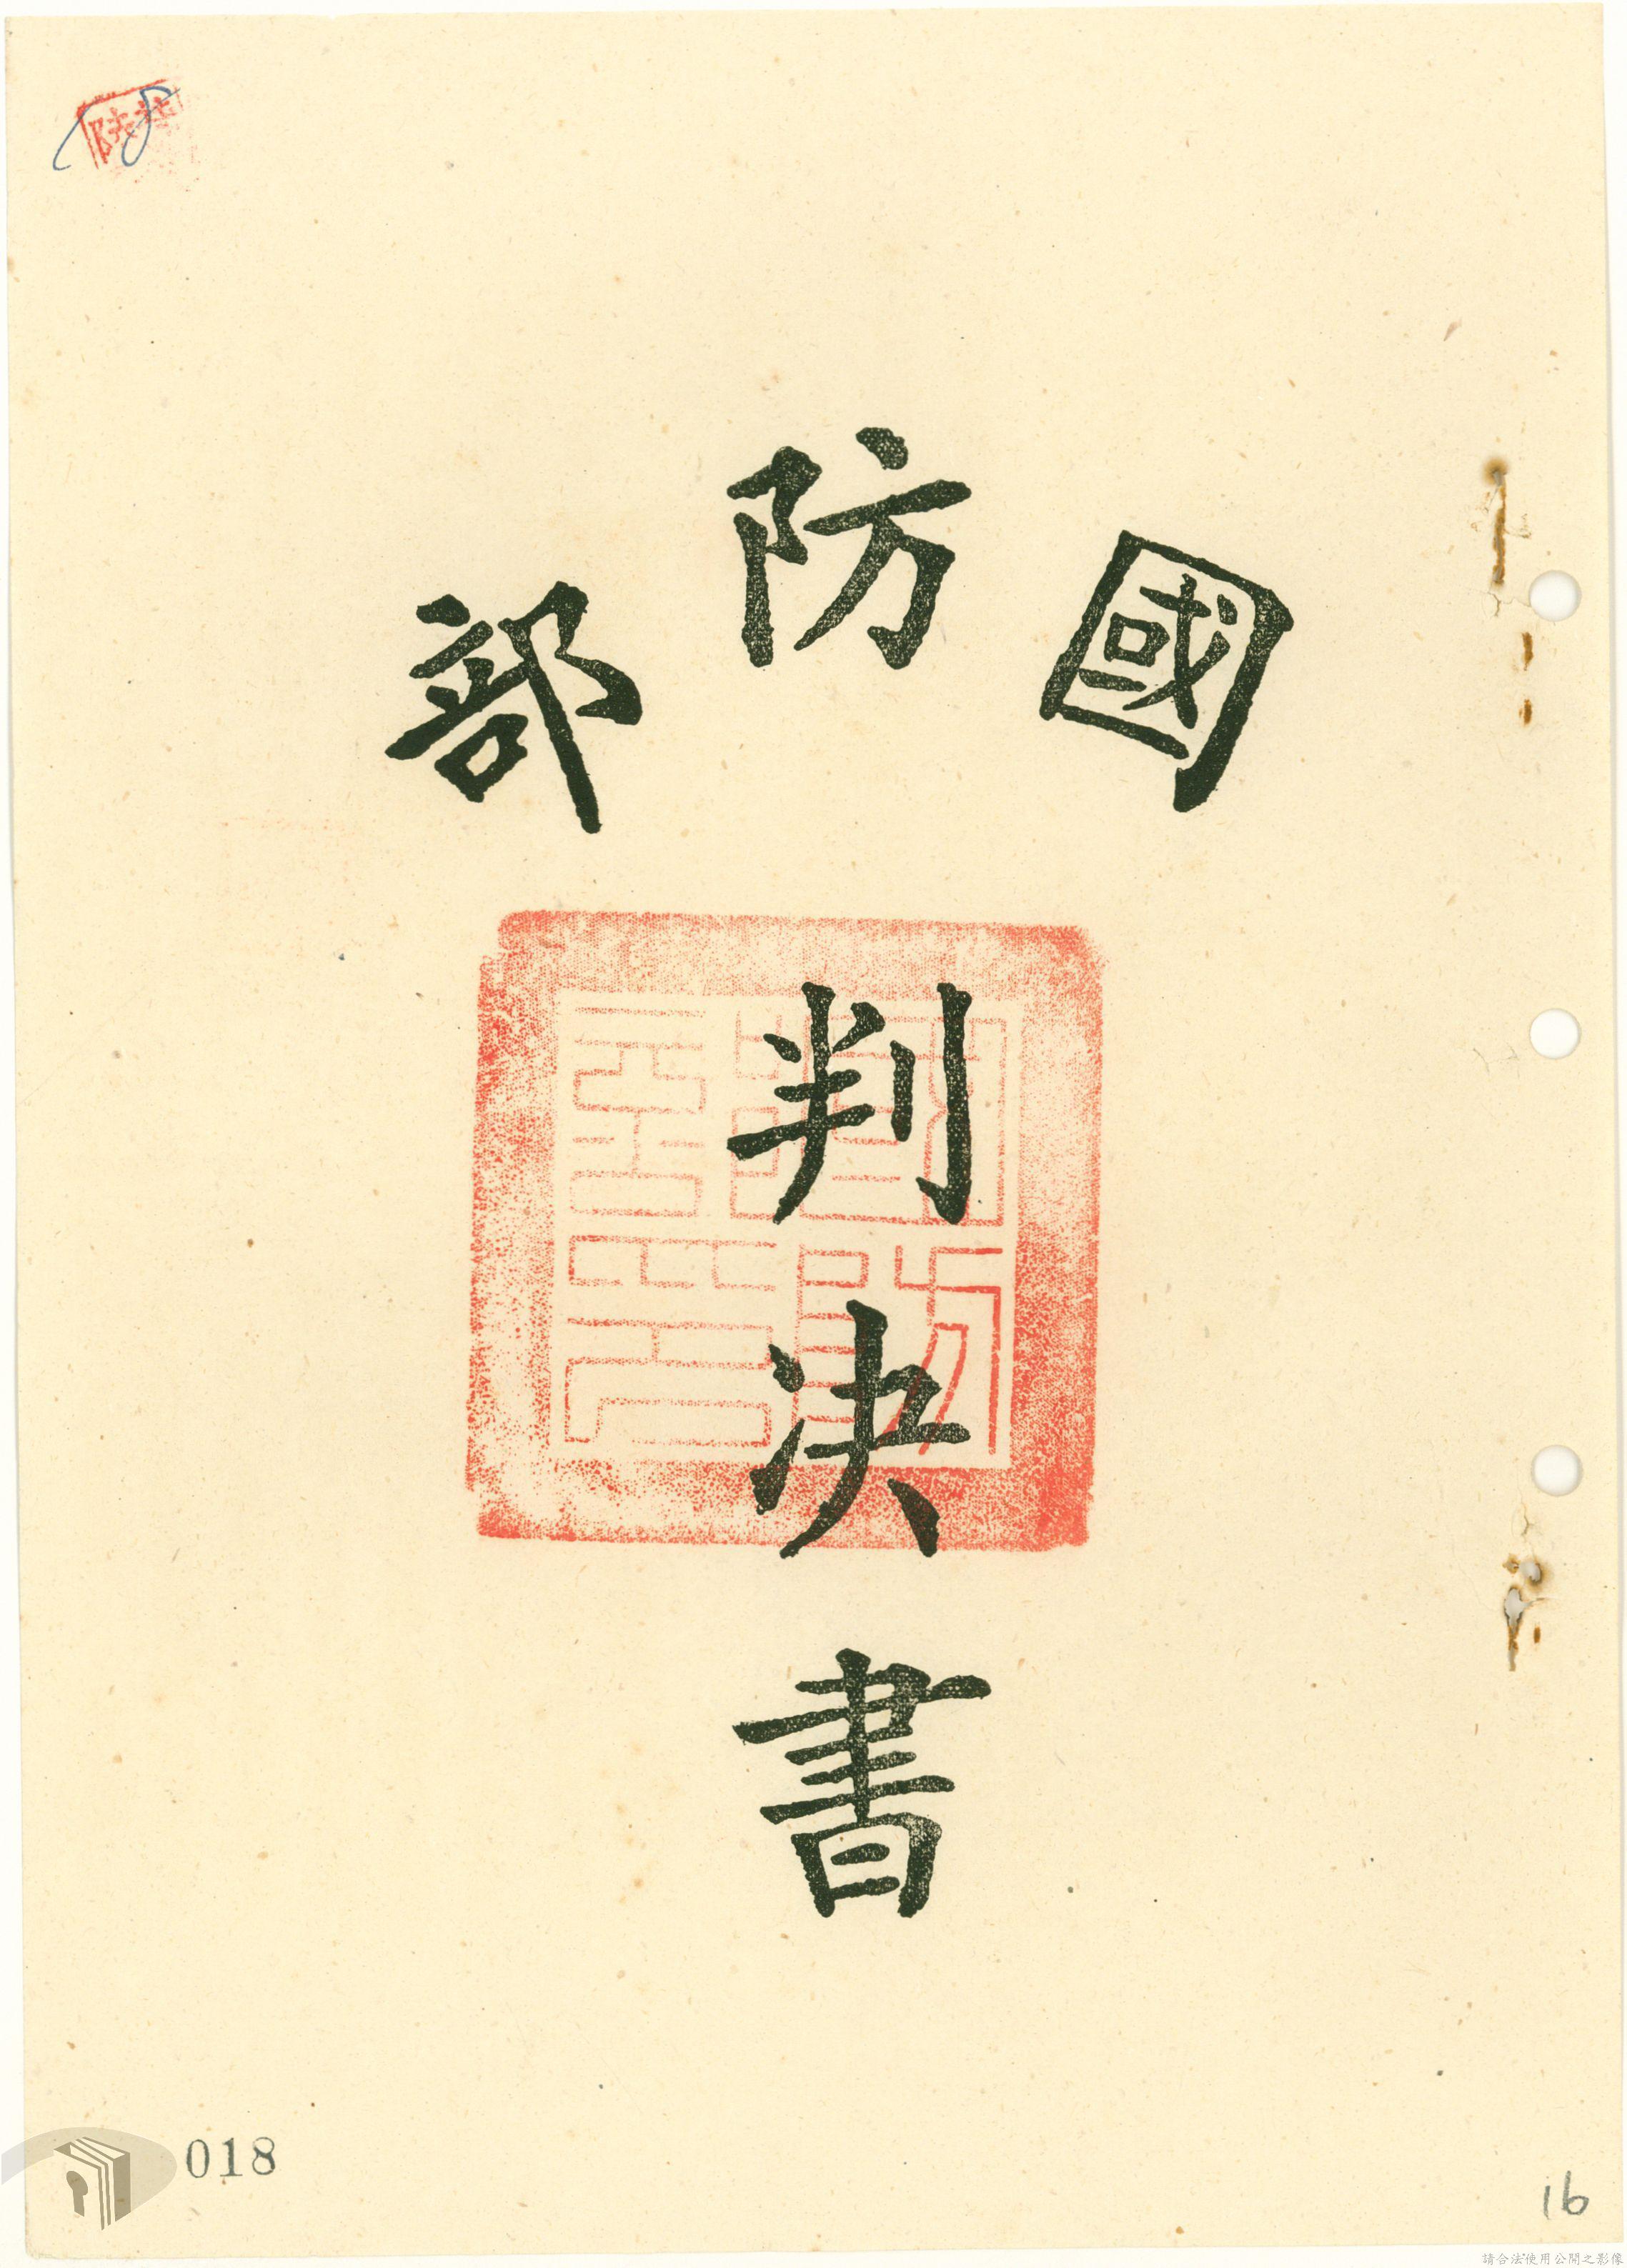 國防部
判決書
018
16
請合法使用公開之影像